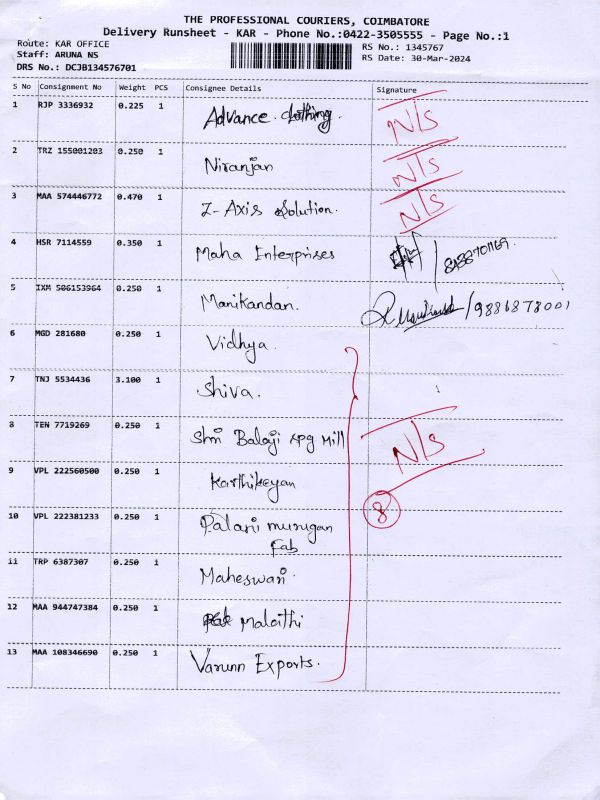 THE PROFESSIONAL COURIERS, COIMBATORE
Delivery Runsheet - KAR - Phone No.:0422-3505555 - Page No.:1
Route: KAR OFFICE
Staff: ARUNA NS
DRS No.: DCJB134576701
RS No.: 1345767
RS Date: 30-Mar-2024
S No Consignment No Weight PCS Consignee Details Signature
1 RJP 3336932 0.225 1 Advance clothing. N/S
2 TRZ 155001203 0.250 1 Niranjan N/S
3 MAA 574446772 0.470 1 Z-Axis Solution. N/S
4 HSR 7114559 0.350 1 Maha Enterprises
5 IXM 506153964 0.250 1 Manikandan. /9886878001
6 MGD 281680 0.250 1 Vidhya
7 TNJ 5534436 3.100 1 Shiva.
8 TEN 7719269 0.250 1 Shri Balaji spg Mill N/S
9 VPL 222560500 0.250 1 Karthikeyan
8
10 VPL 222381233 0.250 1 Palani murugan
Fab
11 TRP 6387307 0.250 1 Maheswari
12 MAA 944747384 0.250 1 Malathi
13 MAA 108346690 0.250 1 Varunn Exports.